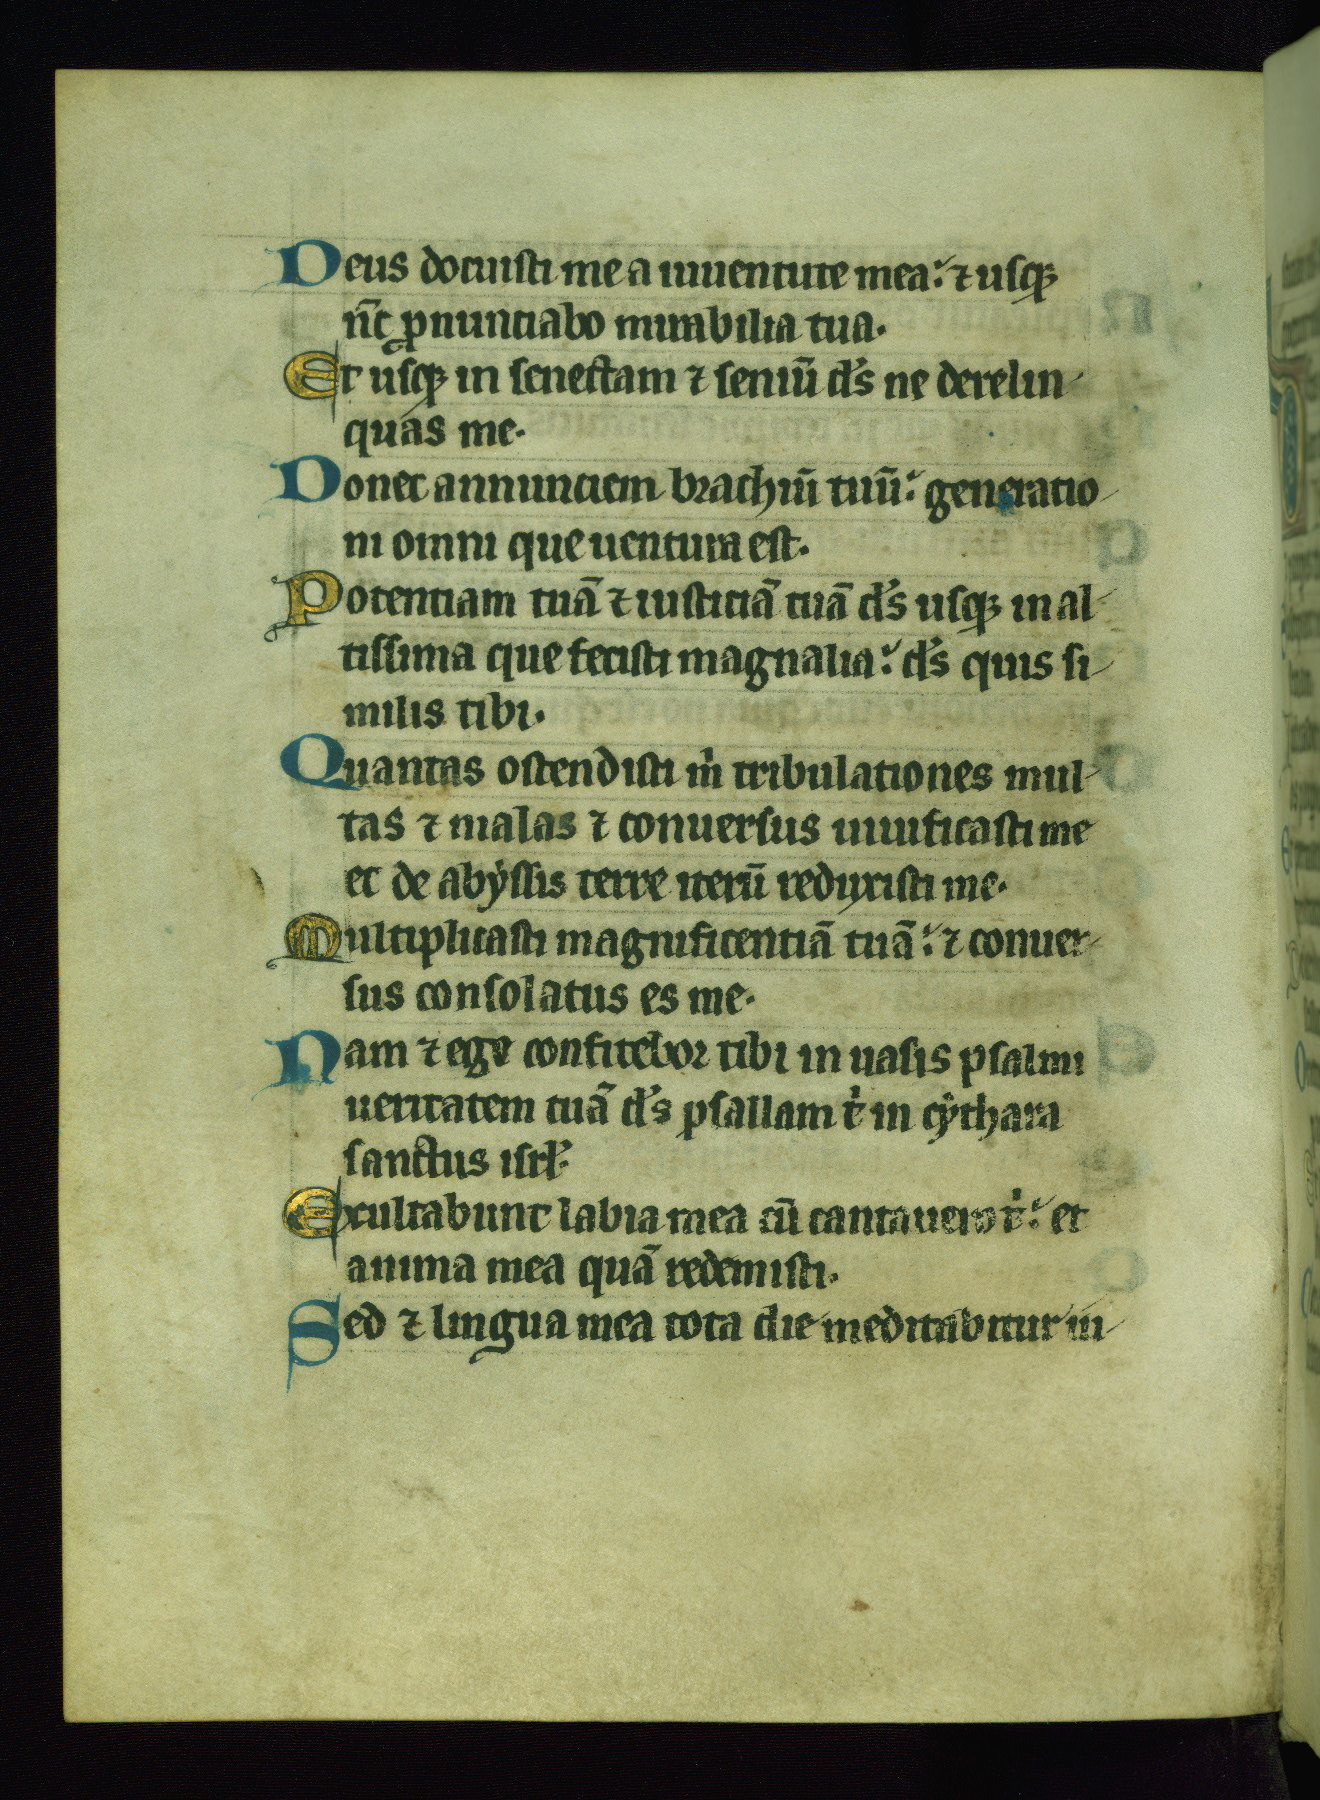 Deus docuisti me a iuuentute mea: ⁊ usq;
nc̄ ꝓnunciabo mirabilia tua.
Et usq; in senectam ⁊ seniū d̓s ne derelin
quas me.
Donec annunciem brachiū tuū: generatio
ni omni que uentura est.
Potentiam tuā ⁊ iusticiā tuā d̓s usq; in al
tissima que fecisti magnalia: d̓s quis si
milis tibi.
Quantas ostendisti m̓ tribulationes mul
tas ⁊ malas ⁊ conuersus uiuificasti me
et de abyssis terre iterū reduxisti me.
Multiplicasti magnificentiā tuā: ⁊ conuer
sus consolatus es me.
Nam ⁊ ego confitebor tibi in uasis psalmi
ueritatem tuā d̓s psallam t̓ in cythara
sanctus isrl̓.
Exultabunt labia mea cū cantauero t̓: et
anima mea quā redemisti.
Sed ⁊ lingua mea tota die meditabitur in